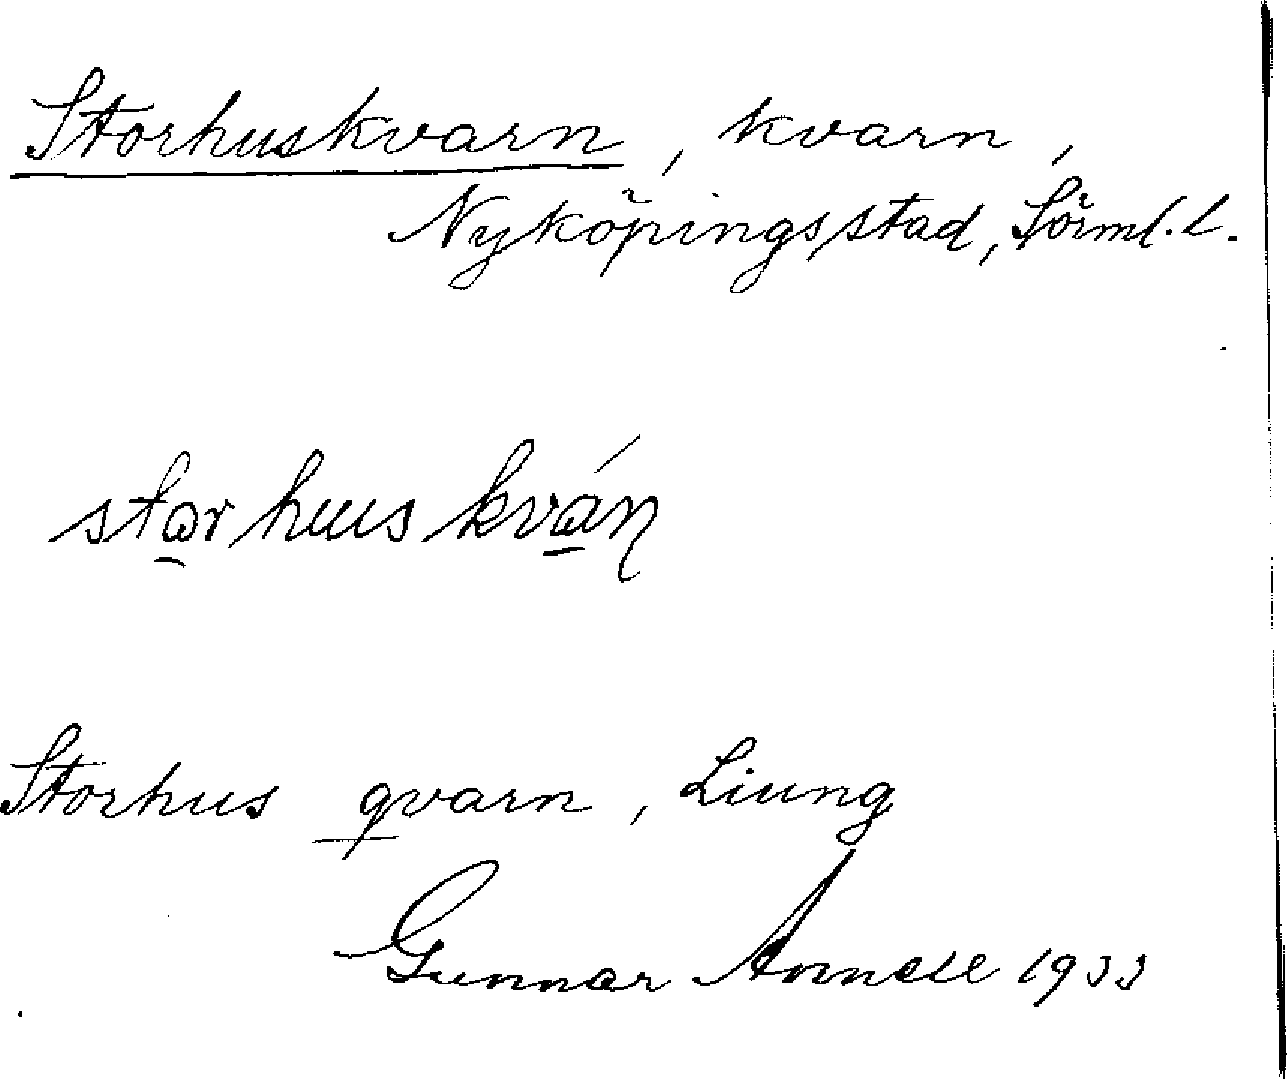 Storhuskvarn, kvarn,
Nyköpings stad, Sörml. l.
storhuskván
Storhus qvarn, Liung
Gunnar Annell 1933